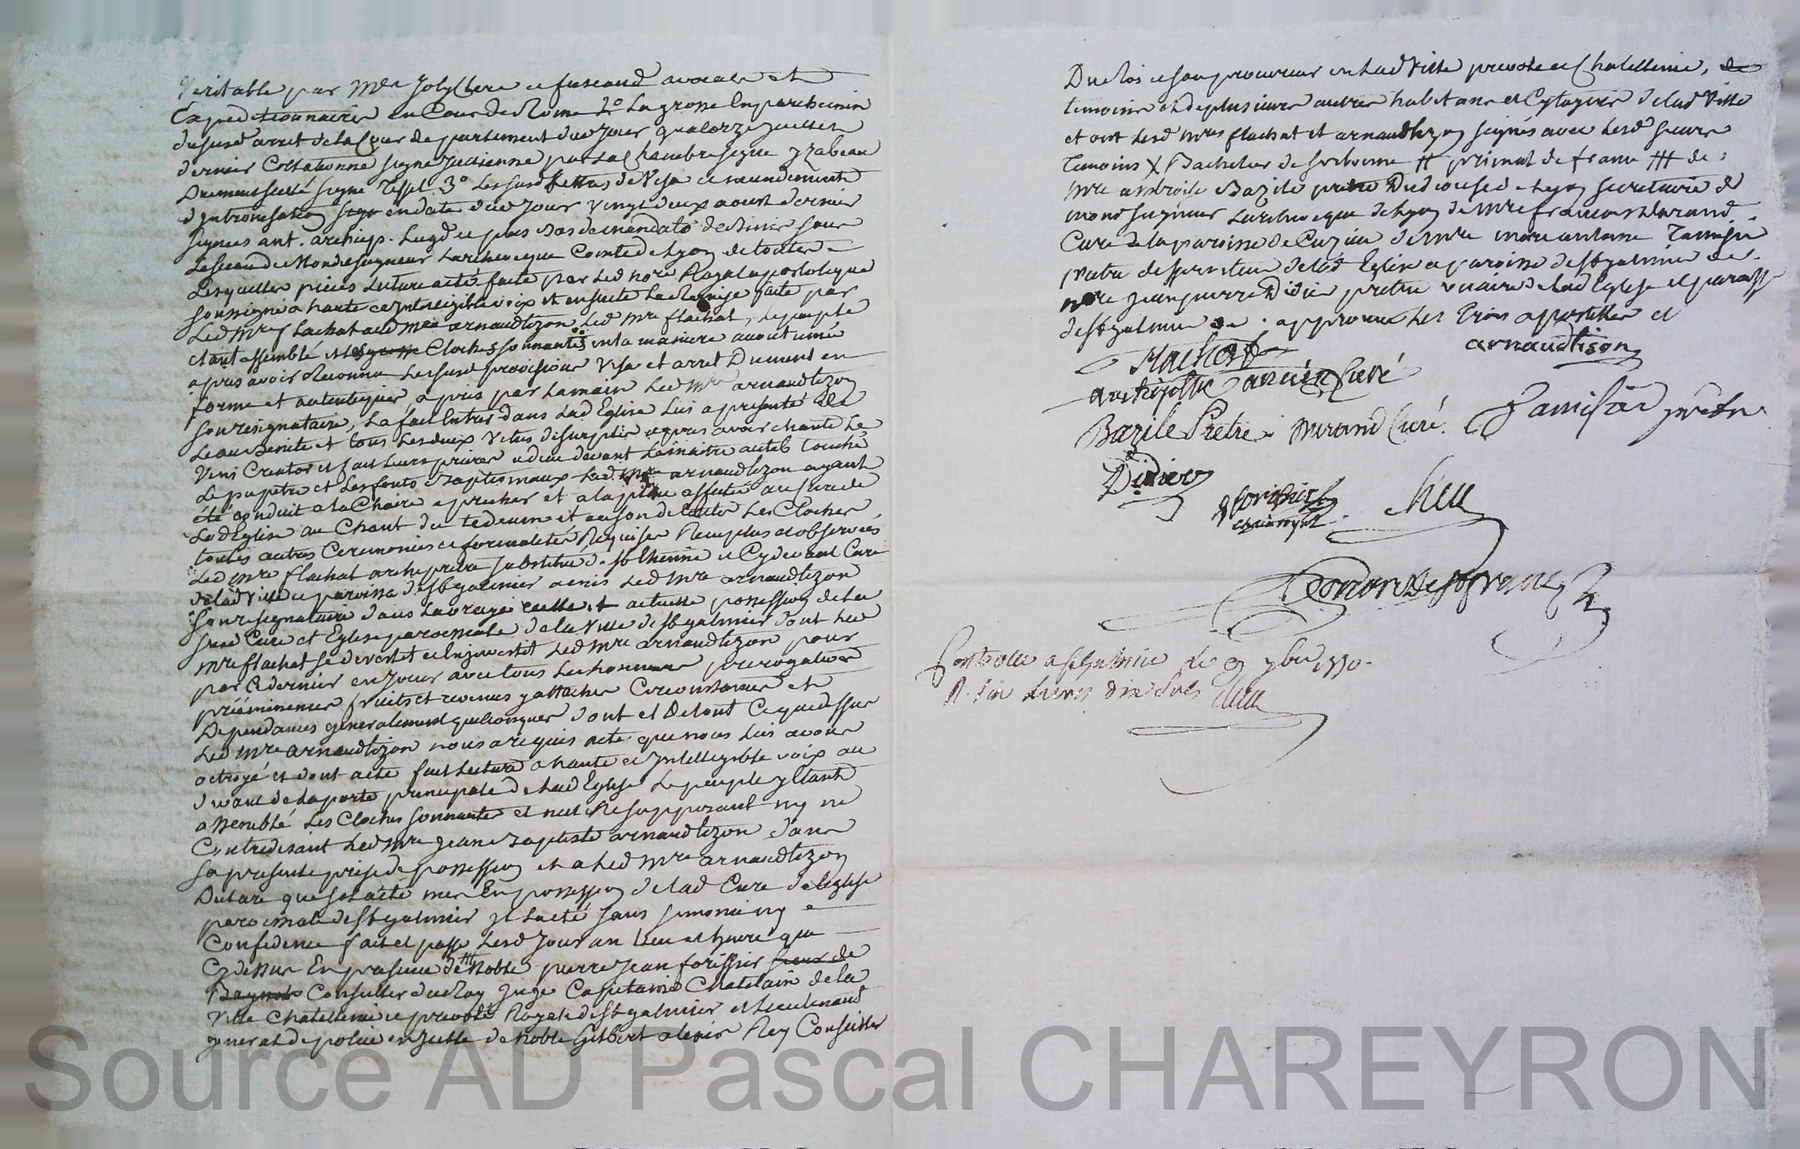 Veritable par Mrs Jolyclerc et fuscand avocats et
Expeditionnaires en Cour de Rome 2o La grosse En parchemin
du susd arret de la Cour de parlement du jour quatorze juillet
dernier Collationné signé Julienne par la Chambre signe yzabeau
Duement scellé signe 3o Les susd Lettres de Visa et mandement
d'intronisation signé en datte du jour vingt deux aoust dernier
signées ant. archiep. Lugd. et plus bas de mandato
Le sceau de Monseigneur L'archeveque Comte de Lyon de toutes
Lesquelles pieces Lecture a été faite par led nore Royal apostolique
soussigné a haute et intelligible voix et ensuite La Remise faite par
Led Mre flachat aud Mre arnaudtizon, Led Mre flachat, Le peuple
etant assemblé et Cloches sonnantes en la maniere accoutumée
apres avoir Reconnu Les susd provisions Visa et arret Duement en
forme et autentiques a pris par la main Led Mre arnaudtizon
sonresignataire, La fait Entrer dans Lad Eglise Lui a presenté de
L'eau Benite et tous Les deux Vetus de surplis apres avoir chanté Le
Veni Creator et fait Leurs prieres a dieu devant Le maitre autel touché
Le pupitre et Les fonts Baptismaux Led Mre arnaudtizon ayant
été conduit a la Chaire a precher et a la place affectée au Curé de
Lad Eglise au Chant du te deum et au son de toutes Les Cloches
toutes autres Ceremonies et formalités Requises Remplies et observées
Led Mre flachat archiprêtre substitué de St Etienne et Cydevant Curé
de lad Ville et paroisse de St galmier a mis Led Mre arnaudtizon
sonresignataire dans La vraye reelle et actuelle possession de la
susd Cure et Eglise paroissiale de la Ville de St galmier dont Led
Mre flachat se devestit et Enjouvestit Led Mre arnaudtizon pour
par Ce dernier en jouir avec tous Les honneurs prerogatives
préeminences fruits et revenus y attachés Circonstances et
Dependances generalement quelconques dont et De tout Ce que dessus
Led Mre arnaudtizon nous a requis acte que nous Lui avons
octroyé et dont acte fait Lecture a haute et Intelligible voix au
devant de La porte principale de Lad Eglise Le peuple y Etant
assemblé Les Cloches sonnantes et nul ne s'opposant ny ne
Contredisant Led Mre Jean Baptiste arnaudtizon dans
sa presente prise de possession et a Led Mre arnaudtizon
Declaré que s'il a été mis En possession de lad Cure de l'Eglise
paroissiale de St galmier il L'a été sans simonie ny
Confidence fait et passé Lesd jour an Lieu et heure que
Cy dessus En presence de Noble pierre Jean forissier
Conseiller du Roy Juge Capitaine Chatelain de la
Ville Chatellenie et prevôté Royale de St galmier et Lieutenant
general de police en Icelle de Noble Gilbert alexis Rey Conseiller
Du Roi et son procureur en Lad Ville prevoté et Chatellenie,
temoins et de plusieurs autres habitans et Cytoyens de Lad Ville
et ont Lesd Mres flachat et arnaudtizon signés avec Lesd sieurs
Temoins X Bachelier de Sorbonne # primat de france ### de
Mre ambroise Bazile pretre Du diocese de Lyon secretaire de
Monseigneur L'archeveque de Lyon de Mre francois Durand
Curé de la paroisse de Cuzieu de Mre marc antoine
pretre desserviteur de lad Eglise et paroisse de St galmier
Mre jean pierre Didier pretre vicaire de lad Eglise et paroisse
de St galmier approuvé Les trois apostilles et
flachat
arnaudtison
archiprêtre ancien Curé
Bazile Pretre Durand Curé.
Didier
forissier
Rey
Controllé a St galmier le 9 7bre 1770.
R. Six Livres dix sols
Source AD Pascal CHAREYRON